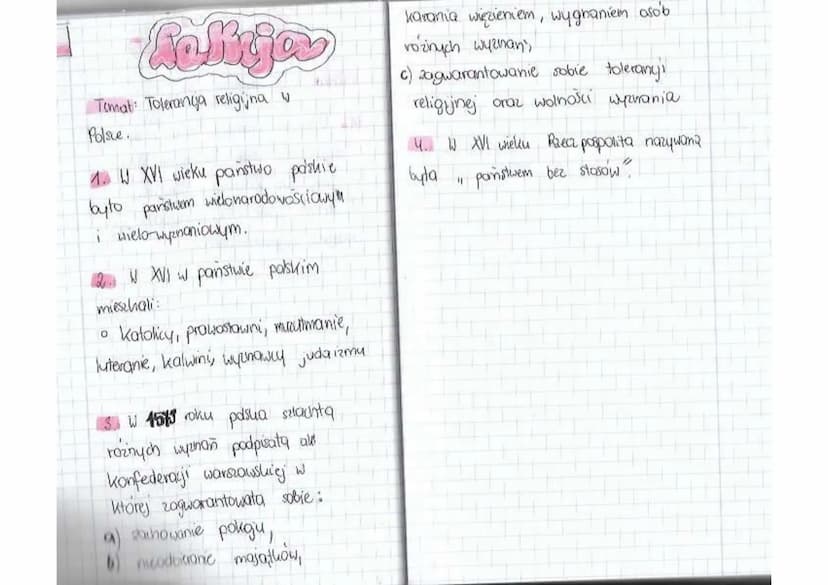 Lekcja
Temat: Tolerancja religijna w
Polsce.
1. W XVI wieku państwo polskie
było państwem wielonarodowościowym
i wielo-wyznaniowym.
2. W XVI w państwie polskim
mieszkali:
o Katolicy, prawosławni, muzułmanie,
luteranie, kalwini, wyznawcy judaizmu
3. W 1573 roku polska szlachta
różnych wyznań podpisała akt
konfederacji warszawskiej w
której zagwarantowała sobie:
a) zachowanie pokoju,
b) nieodbieranie majątków,
karania więzieniem, wygnaniem osób
różnych wyznań,
c) zagwarantowanie sobie tolerancji
religijnej oraz wolności wyznania
4. W XVI wieku Rzeczpospolita nazywana
była „państwem bez stosów".